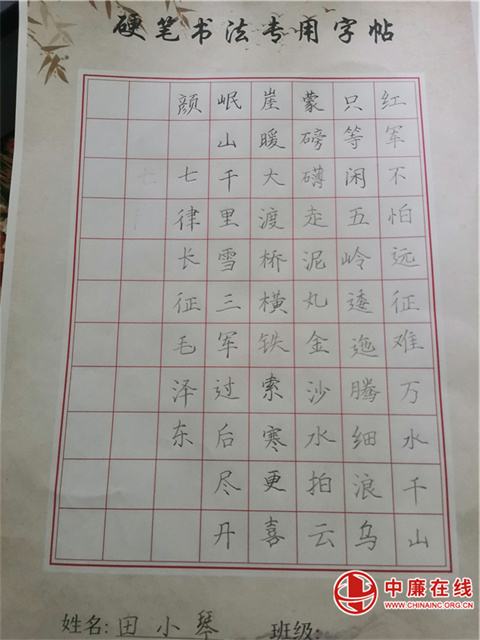 硬笔书法专用字帖
红军不怕远征难万水千山
只等闲五岭逶迤腾细浪乌
蒙磅礴走泥丸金沙水拍云
崖暖大渡桥横铁索寒更喜
岷山千里雪三军过后尽丹
颜 七律长征毛泽东
七
姓名: 田小琴 班级:
中廉在线
WWW.CHINAINC.ORG.CN